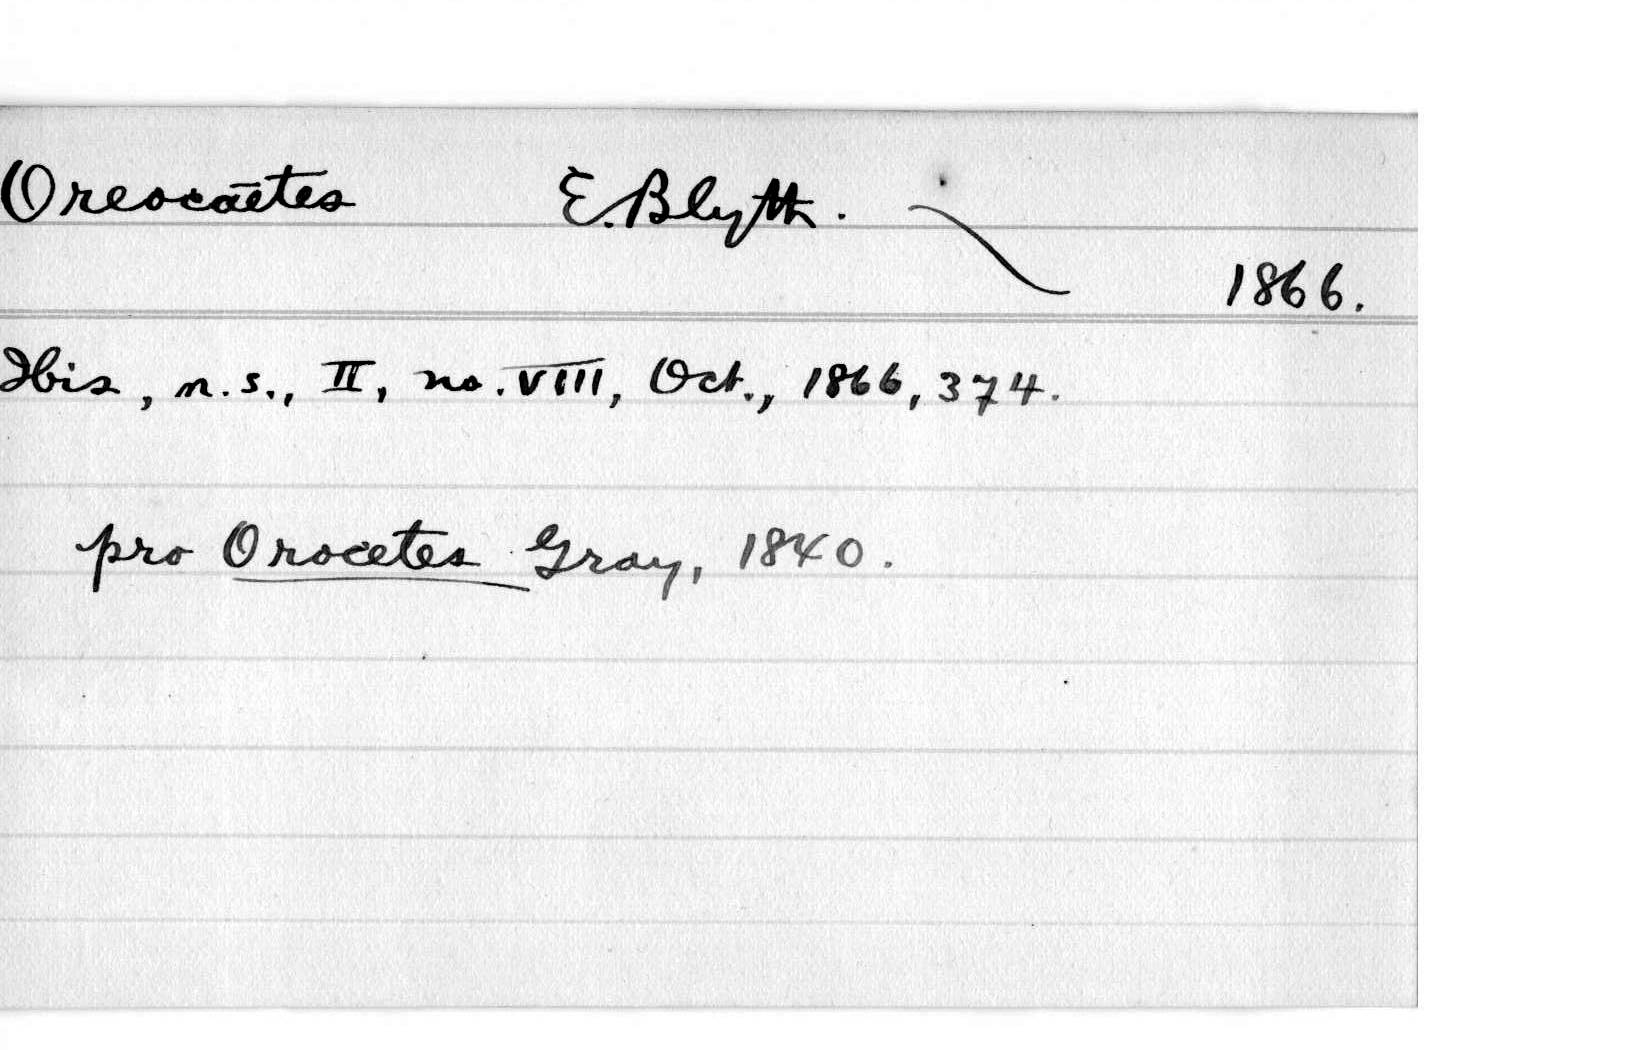 Oreocaëtes E. Blyth.
1866.
Ibis, n.s., II, no. VIII, Oct., 1866, 374.
pro Orocetes Gray, 1840.